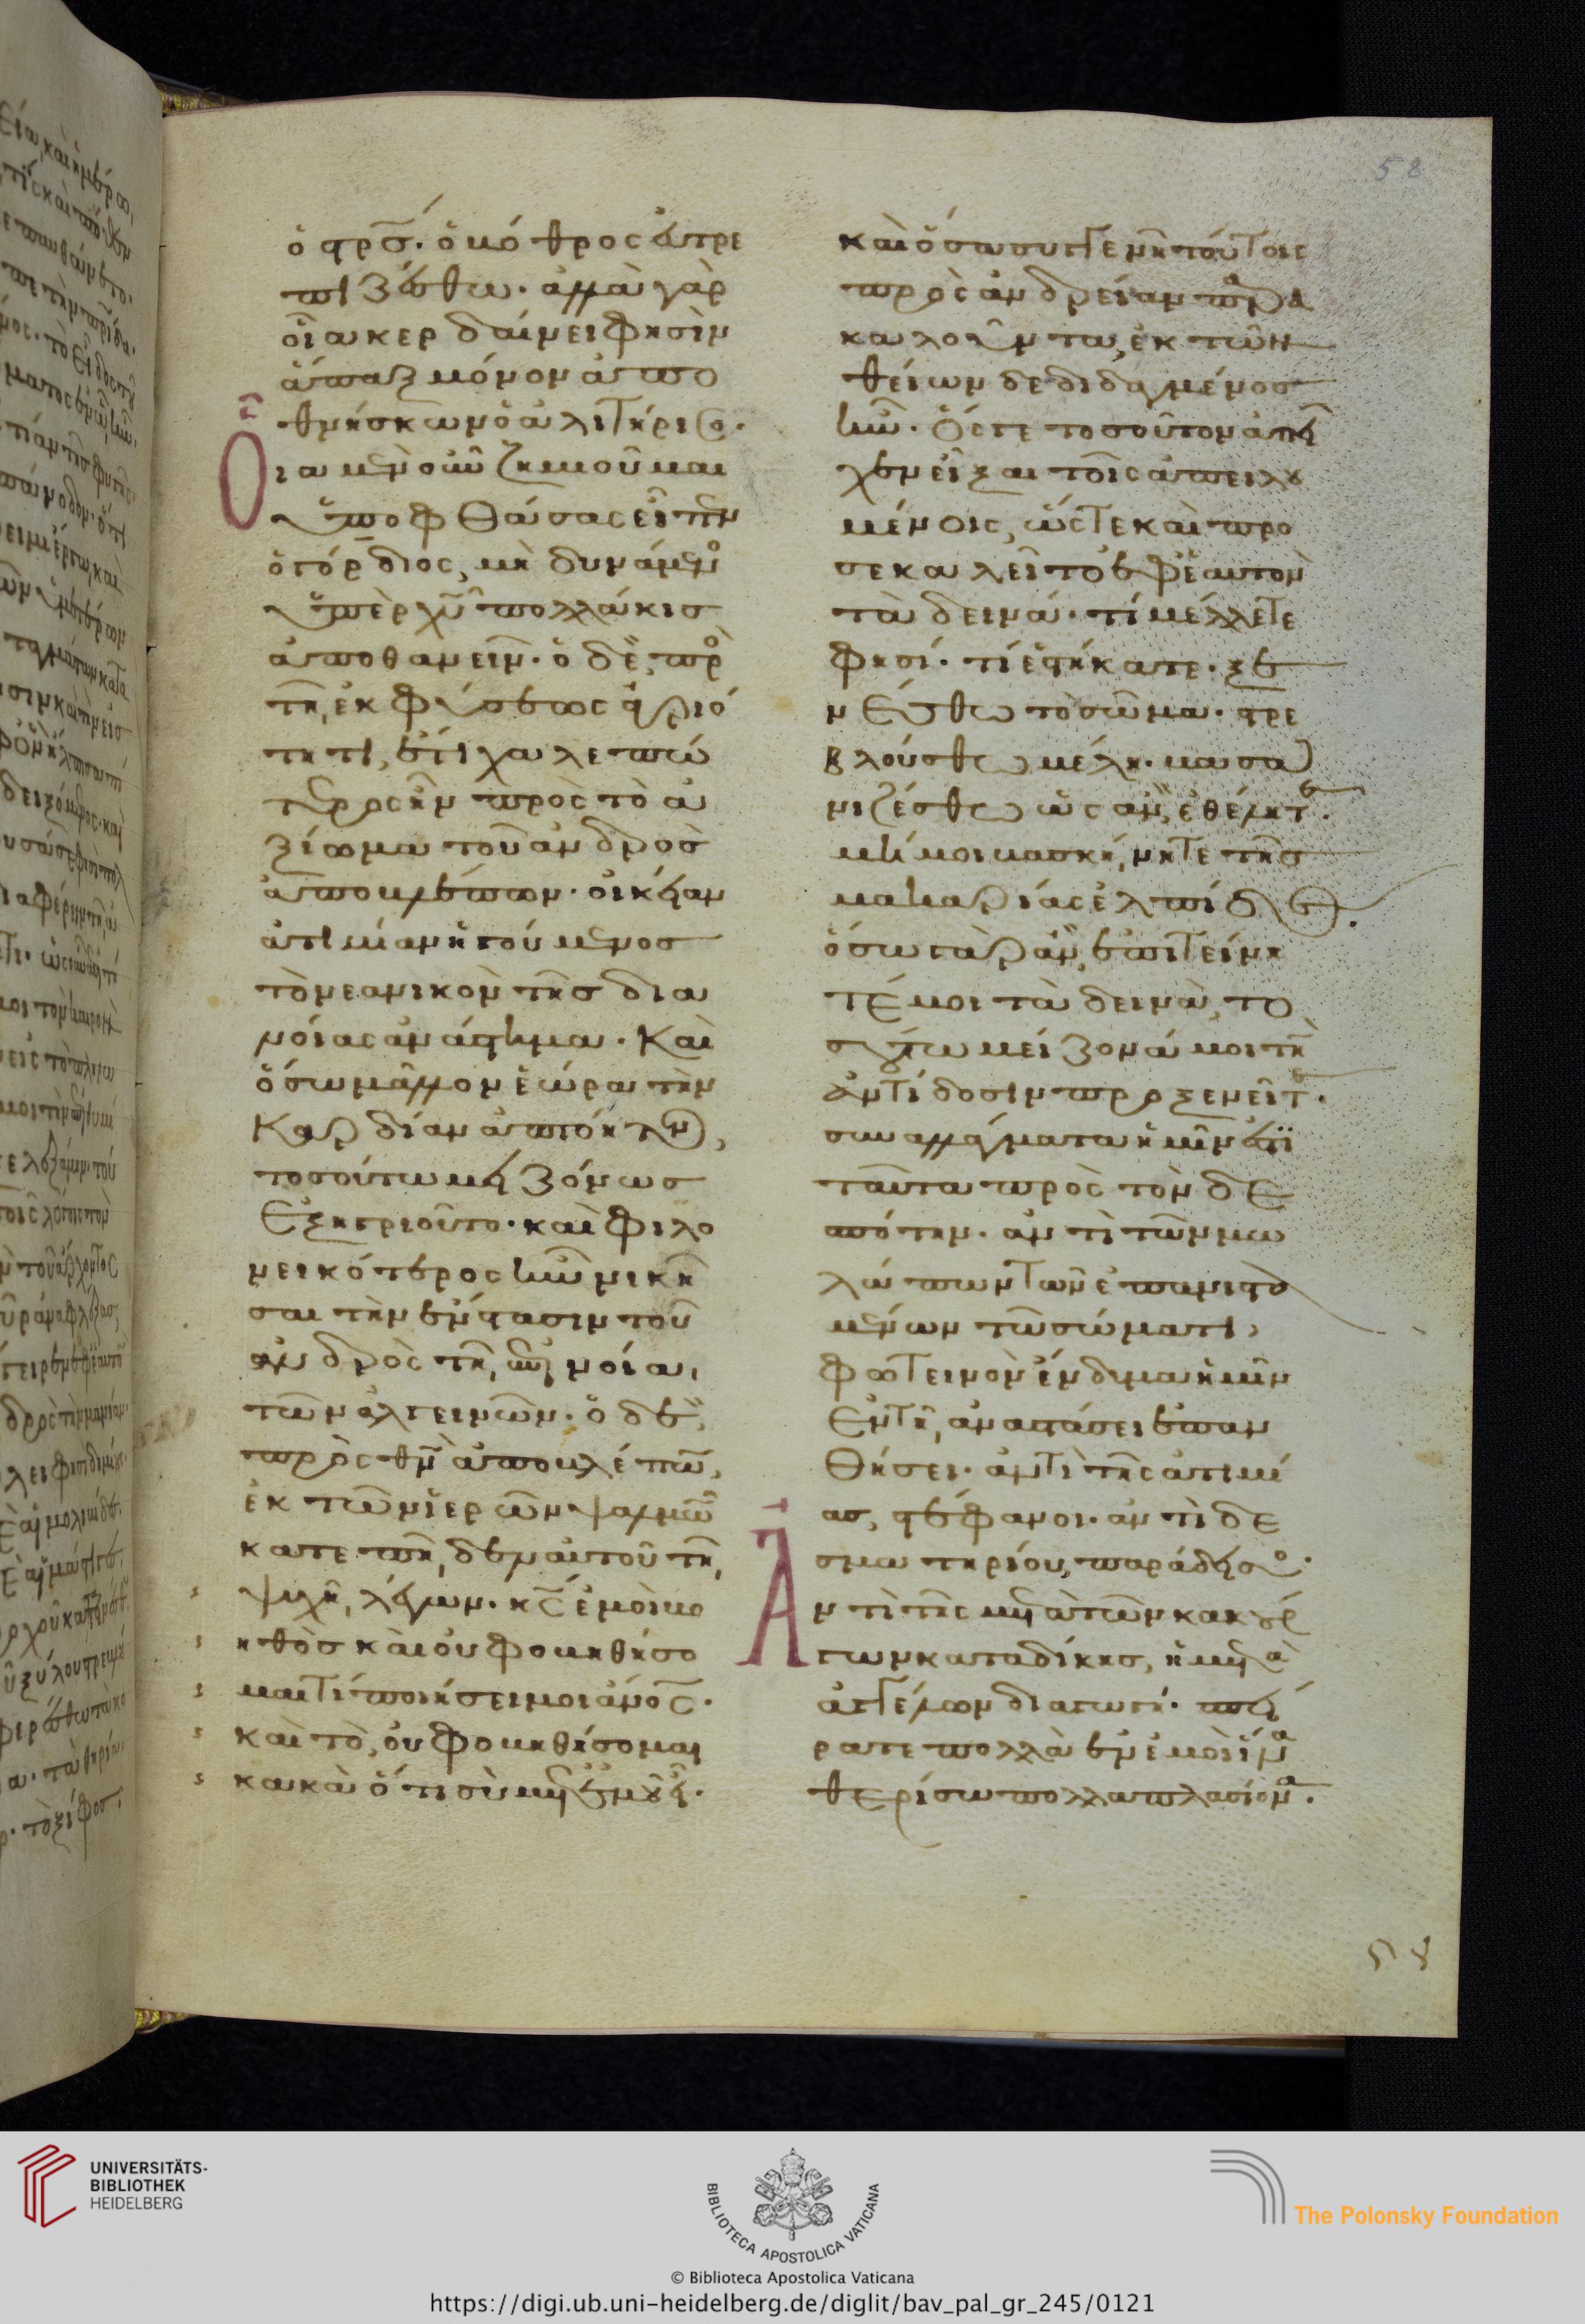 ὁ στρσ́· ὁ βόθρος εὐτρε
πιζέσθω· ἀλλὰ γὰρ
οἷα κερδαίνει φησὶν
ἅπαξ μόνον ἀπο
θνήσκων ὁ ἀλιτήριος·
Οἷα μὲν οὖν ζημιοῦμαι
ὑποφθάσας εἶπεν
ὁ γόρδιος, μὴ δυνάμενος
ὑπὲρ χῦ πολλάκισ
ἀποθανεῖν· ὁ δὲ, πρὸς
τῆ, ἐκ φύσεως ἀγριό
τητι, ἔτι χαλεπώ
τερος ἦν πρὸς τὸ ἀ
ξίωμα τοῦ ἀνδρὸσ
ἀποβλέπων· οἰκείαν
ἀτιμίαν ἡγούμενοσ
τὸ νεανικὸν τῆσ δια
νοίας ἀνάστημα· Καὶ
ὅσω μᾶλλον ἑώρα τὴν
Καρδίαν ἀπτόητον,
τοσούτω μειζόνωσ
ἐξηγριοῦτο· καὶ φιλο
νεικότερος ἦν νικῆ
σαι τὴν ἔνστασιν τοῦ
ἀνδρὸς τῆ, ἐπινοία,
τῶν ἀλγεινῶν· ὁ δὲ,
πρὸς θν̄ ἀποβλέπων,
ἐκ τῶν ἱερῶν ψαλμῶν
κατεπῆ,δεν αὐτοῦ τῆ,
ψυχῆ, λέγων· κ̄ς ἐμοὶ βο
ηθὸσ καὶ οὐ φοβηθήσο
μαι τί ποιήσει μοι ἀν̄ος·
καὶ τὸ, οὐ φοβηθήσομαι
κακὰ ὅτι σὺ μετ' ἐμοῦ εἶ·
καὶ ὅσα συγγενῆ τούτοις
πρὸς ἀνδρείαν παρα
καλοῦντα, ἐκ τῶν
θείων δεδιδαγμένοσ
ἦν· Ὅς γε τοσοῦτον ἀπεῖ
χεν εἶξαι τοῖς ἀπειλου
μένοις, ὥστε καὶ προ
σεκαλεῖτο ἐφ' ἑαυτὸν
τὰ δεινά· τί μέλλετε
φησί· τί ἑστήκατε· ξε
νέσθω τὸ σῶμα· στρε
βλούσθω μέλη· βασα
νιζέσθω ὡς ἂν, ἐθέλητε·
μή μοι βασκήνητε τῆσ
μακαρίας ἐλπίδος·
ὅσω γὰρ ἂν, ἐπιτείνη
τέ μοι τὰ δεινὰ, το
σούτω μείζονά μοι τὴν
ἀντίδοσιν προξενεῖτε·
συναλλάγματα ἡμῖν ἐστι
ταῦτα πρὸς τὸν δε
σπότην· ἀντὶ τῶν μω
λώπων τῶν ἐπανιστα
μένων τῶ σώματι,
φωτεινὸν ἔνδυμα ἡμῖν
ἐν τῆ, ἀναστάσει ἐπαν
θήσει· ἀντὶ τῆς ἀτιμί
ασ, στέφανοι· ἀντὶ δε
σμωτηρίου, παράδεισος·
Ἀντὶ τῆς μετὰ τῶν κακούρ
γων καταδίκησ, ἡ μετὰ
ἀγγέλων διαγωγή· σπεί
ρατε πολλὰ ἐν ἐμοὶ ἵνα
θερίσω πολλαπλασίονα·
58
58
UNIVERSITÄTS-
BIBLIOTHEK
HEIDELBERG
BIBLIOTECA APOSTOLICA VATICANA
The Polonsky Foundation
© Biblioteca Apostolica Vaticana
https://digi.ub.uni-heidelberg.de/diglit/bav_pal_gr_245/0121